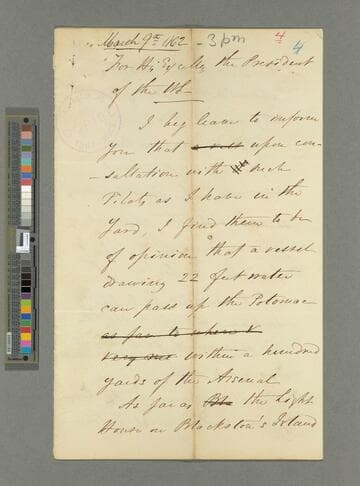 March 9th 1862 - 3 pm 4 4
For His Excelley the President
of the US -
I beg leave to inform
you that upon con-
-sultation with such
Pilots as I have in the
Yard, I find them to be
of opinion that a vessel
drawing 22 feet water
can pass up the Potomac
as far to where &
very one within a hundred
yards of the Arsenal
As far as the Light
House on Blackston's Island